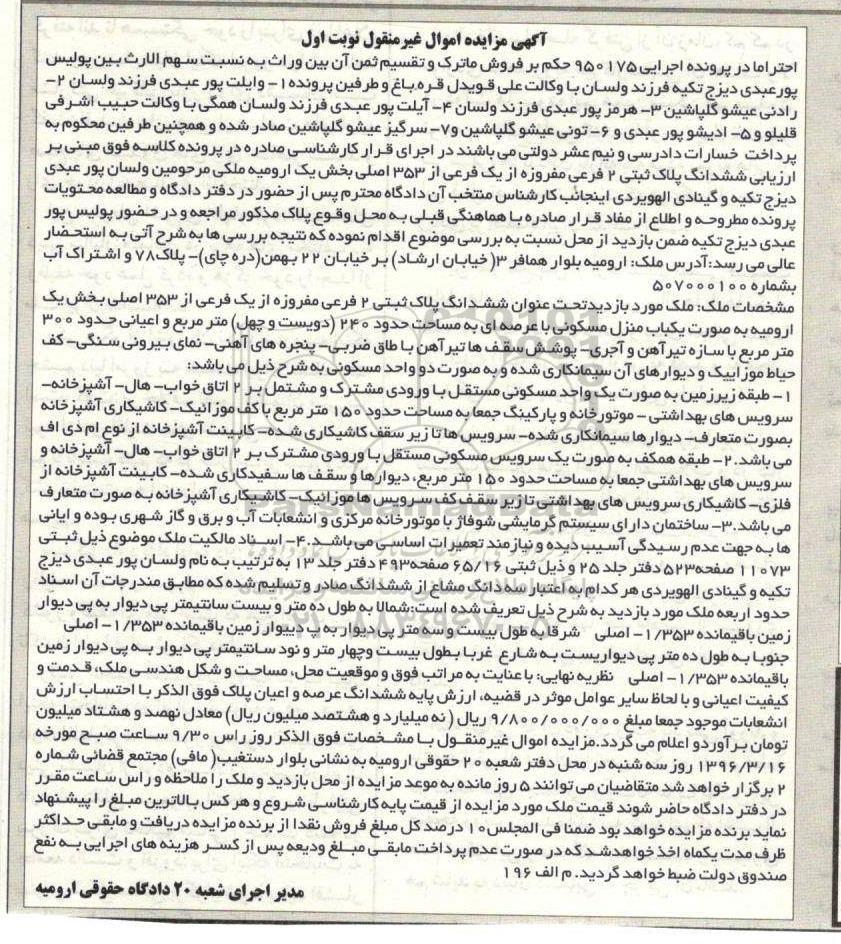 آگهی مزایده اموال غیرمنقول نوبت اول
احتراما در پرونده اجرایی ۹۵۰۱۷۵ حکم بر فروش ماترک و تقسیم ثمن آن بین وراث به نسبت سهم الارث بین پولیس
پورعبدی دیزج تکیه فرزند ولسان با وکالت علی قویدل قره باغ و طرفین پرونده ۱- وایلت پور عبدی فرزند ولسان ۲-
رادنی عیشو گلپاشین ۳- هرمز پور عبدی فرزند ولسان ۴- آیلت پور عبدی فرزند ولسان همگی با وکالت حبیب اشرفی
قلیلو و ۵- ادیشو پور عبدی و ۶- تونی عیشو گلپاشین و۷- سرگیز عیشو گلپاشین صادر شده و همچنین طرفین محکوم به
پرداخت خسارات دادرسی و نیم عشر دولتی می باشند در اجرای قرار کارشناسی صادره در پرونده کلاسه فوق مبنی بر
ارزیابی ششدانگ پلاک ثبتی ۲ فرعی مفروزه از یک فرعی از ۳۵۳ اصلی بخش یک ارومیه ملکی مرحومین ولسان پور عبدی
دیزج تکیه و گینادی الهویردی اینجانب کارشناس منتخب آن دادگاه محترم پس از حضور در دفتر دادگاه و مطالعه محتویات
پرونده مطروحه و اطلاع از مفاد قرار صادره با هماهنگی قبلی به محل وقوع پلاک مذکور مراجعه و در حضور پولیس پور
عبدی دیزج تکیه ضمن بازدید از محل نسبت به بررسی موضوع اقدام نموده که نتیجه بررسی ها به شرح آتی به استحضار
عالی می رسد:آدرس ملک: ارومیه بلوار همافر ۳( خیابان ارشاد) بر خیابان ۲۲ بهمن(دره چای)- پلاک۷۸ و اشتراک آب
بشماره ۵۰۷۰۰۰۱۰۰
مشخصات ملک: ملک مورد بازدیدتحت عنوان ششدانگ پلاک ثبتی ۲ فرعی مفروزه از یک فرعی از ۳۵۳ اصلی بخش یک
ارومیه به صورت یکباب منزل مسکونی با عرصه ای به مساحت حدود ۲۴۰ (دویست و چهل) متر مربع و اعیانی حدود ۳۰۰
متر مربع با سازه تیرآهن و آجری- پوشش سقف ها تیرآهن با طاق ضربی- پنجره های آهنی- نمای بیرونی سنگی- کف
حیاط موزاییک و دیوارهای آن سیمانکاری شده و به صورت دو واحد مسکونی به شرح ذیل می باشد:
۱- طبقه زیرزمین به صورت یک واحد مسکونی مستقل با ورودی مشترک و مشتمل بر ۲ اتاق خواب- هال- آشپزخانه-
سرویس های بهداشتی - موتورخانه و پارکینگ جمعا به مساحت حدود ۱۵۰ متر مربع با کف موزائیک- کاشیکاری آشپزخانه
بصورت متعارف- دیوارها سیمانکاری شده- سرویس ها تا زیر سقف کاشیکاری شده- کابینت آشپزخانه از نوع ام دی اف
می باشد. ۲- طبقه همکف به صورت یک سرویس مسکونی مستقل با ورودی مشترک بر ۲ اتاق خواب- هال- آشپزخانه و
سرویس های بهداشتی جمعا به مساحت حدود ۱۵۰ متر مربع، دیوارها و سقف ها سفیدکاری شده- کابینت آشپزخانه از
فلزی- کاشیکاری سرویس های بهداشتی تا زیر سقف کف سرویس ها موزائیک- کاشیکاری آشپزخانه به صورت متعارف
می باشد.۳- ساختمان دارای سیستم گرمایشی شوفاژ با موتورخانه مرکزی و انشعابات آب و برق و گاز شهری بوده و ایانی
ها به جهت عدم رسیدگی آسیب دیده و نیازمند تعمیرات اساسی می باشد. ۴- اسناد مالکیت ملک موضوع ذیل ثبتی
۱۱۰۷۳ صفحه۵۲۳ دفتر جلد ۲۵ و ذیل ثبتی ۶۵/۱۶ صفحه۴۹۳ دفتر جلد ۱۳ به ترتیب به نام ولسان پور عبدی دیزج
تکیه و گینادی الهویردی هر کدام به اعتبار سه دانگ مشاع از ششدانگ صادر و تسلیم شده که مطابق مندرجات آن اسناد
حدود اربعه ملک مورد بازدید به شرح ذیل تعریف شده است:شمالا به طول ده متر و بیست سانتیمتر پی دیوار به پی دیوار
زمین باقیمانده ۱/۳۵۳- اصلی شرقا به طول بیست و سه متر پی دیوار به پی دییوار زمین باقیمانده ۱/۳۵۳- اصلی
جنوبا به طول ده متر پی دیواریست به شارع غربا بطول بیست وچهار متر و نود سانتیمتر پی دیوار به پی دیوار زمین
باقیمانده ۱/۳۵۳- اصلی نظریه نهایی: با عنایت به مراتب فوق و موقعیت محل، مساحت و شکل هندسی ملک، قدمت و
کیفیت اعیانی و با لحاظ سایر عوامل موثر در قضیه، ارزش پایه ششدانگ عرصه و اعیان پلاک فوق الذکر با احتساب ارزش
انشعابات موجود جمعا مبلغ ۹/۸۰۰/۰۰۰/۰۰۰ ریال ( نه میلیارد و هشتصد میلیون ریال) معادل نهصد و هشتاد میلیون
تومان برآوردو اعلام می گردد.مزایده اموال غیرمنقول با مشخصات فوق الذکر روز راس ۹/۳۰ ساعت صبح مورخه
۱۳۹۶/۳/۱۶ روز سه شنبه در محل دفتر شعبه ۲۰ حقوقی ارومیه به نشانی بلوار دستغیب( مافی) مجتمع قضائی شماره
۲ برگزار خواهد شد متقاضیان می توانند ۵ روز مانده به موعد مزایده از محل بازدید و ملک را ملاحظه و راس ساعت مقرر
در دفتر دادگاه حاضر شوند قیمت ملک مورد مزایده از قیمت پایه کارشناسی شروع و هر کس بالاترین مبلغ را پیشنهاد
نماید برنده مزایده خواهد بود ضمنا فی المجلس۱۰ درصد کل مبلغ فروش نقدا از برنده مزایده دریافت و مابقی حداکثر
ظرف مدت یکماه اخذ خواهدشد که در صورت عدم پرداخت مابقی مبلغ ودیعه پس از کسر هزینه های اجرایی به نفع
صندوق دولت ضبط خواهد گردید. م الف ۱۹۶
مدیر اجرای شعبه ۲۰ دادگاه حقوقی ارومیه